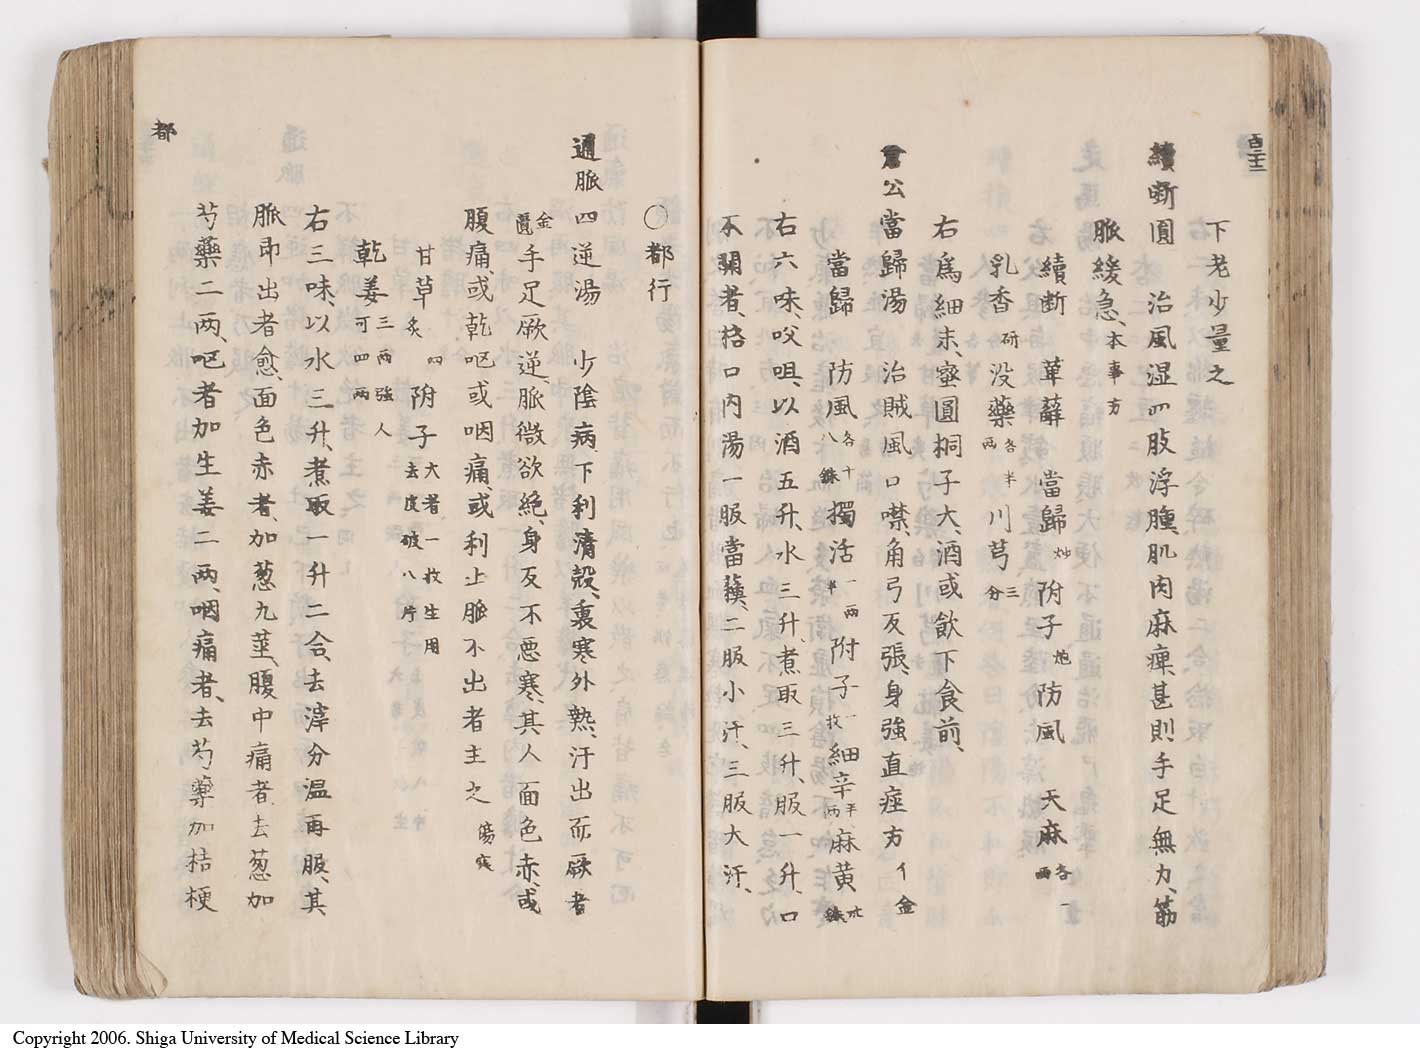 下老少量之
續断圓　治風湿四肢浮腫肌肉麻痺甚則手足無力、筋
脈緩急、本事方
續断　萆薢　當歸炒　附子炮　防風　天麻各一两
乳香研　没藥各半两　川芎三分
右為細末、蜜圓桐子大、酒或飲下食前、
倉公當歸湯　治賊風口噤、角弓反張、身強直痓方　千金
當歸　防風各十八銖　獨活一两半　附子一枚　細辛半两　麻黄卅銖
右六味、咬咀、以酒五升、水三升、煮取三升、服一升、口
不開者、格口内湯一服當蘓、二服小汗、三服大汗、
〇都行
通脈四逆湯　少陰病、下利清穀、裏寒外熱、汗出而厥者
金匱　手足厥逆、脈微欲絶、身反不悪寒、其人面色赤、或
腹痛、或乾呕或咽痛或利止脈不出者主之　傷寒
甘草炙四　附子大者一枚生用去皮破八片
乾姜三两強人可四两
右三味、以水三升、煮取一升二合、去滓分温再服、其
脈即出者愈、面色赤者、加葱九茎、腹中痛者、去葱加
芍藥二两、呕者加生姜二两、咽痛者、去芍藥加桔梗
都
Copyright 2006. Shiga University of Medical Science Library